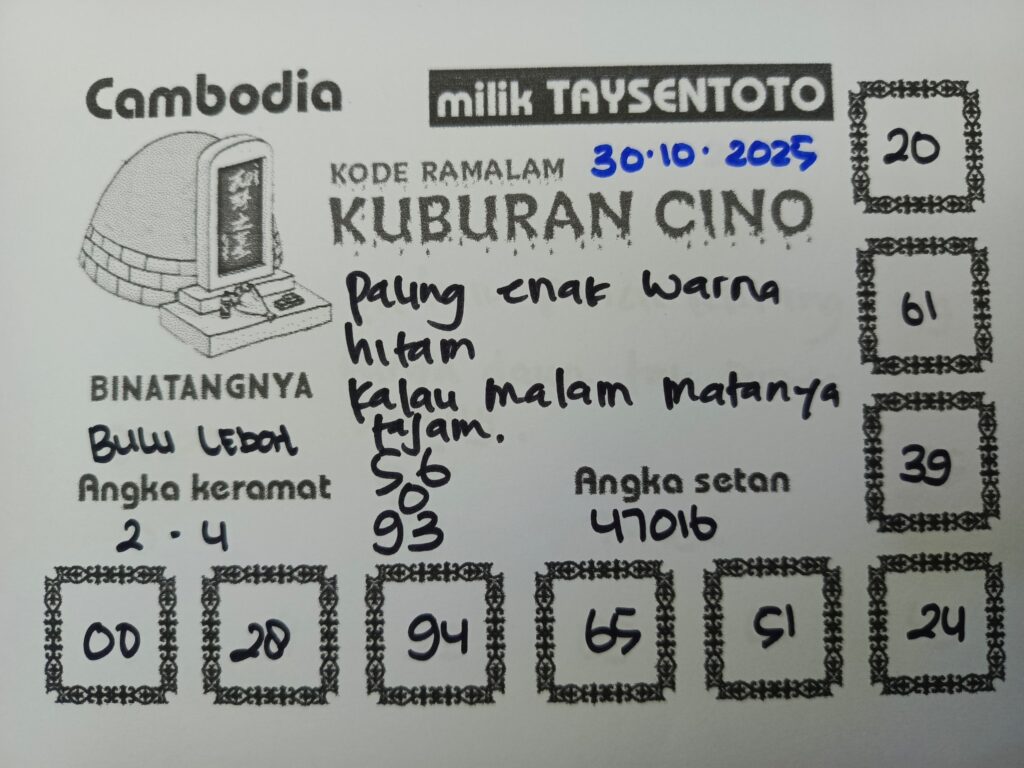 Cambodia
milik TAYSENTOTO
30.10.2025
KODE RAMALAM
KUBURAN CINO
Paling enak warna
hitam
kalau malam matanya
tajam.
BINATANGNYA
BULU LEBAH
56
0
93
Angka keramat
2 . 4
Angka setan
47016
20
61
39
00
28
94
65
51
24